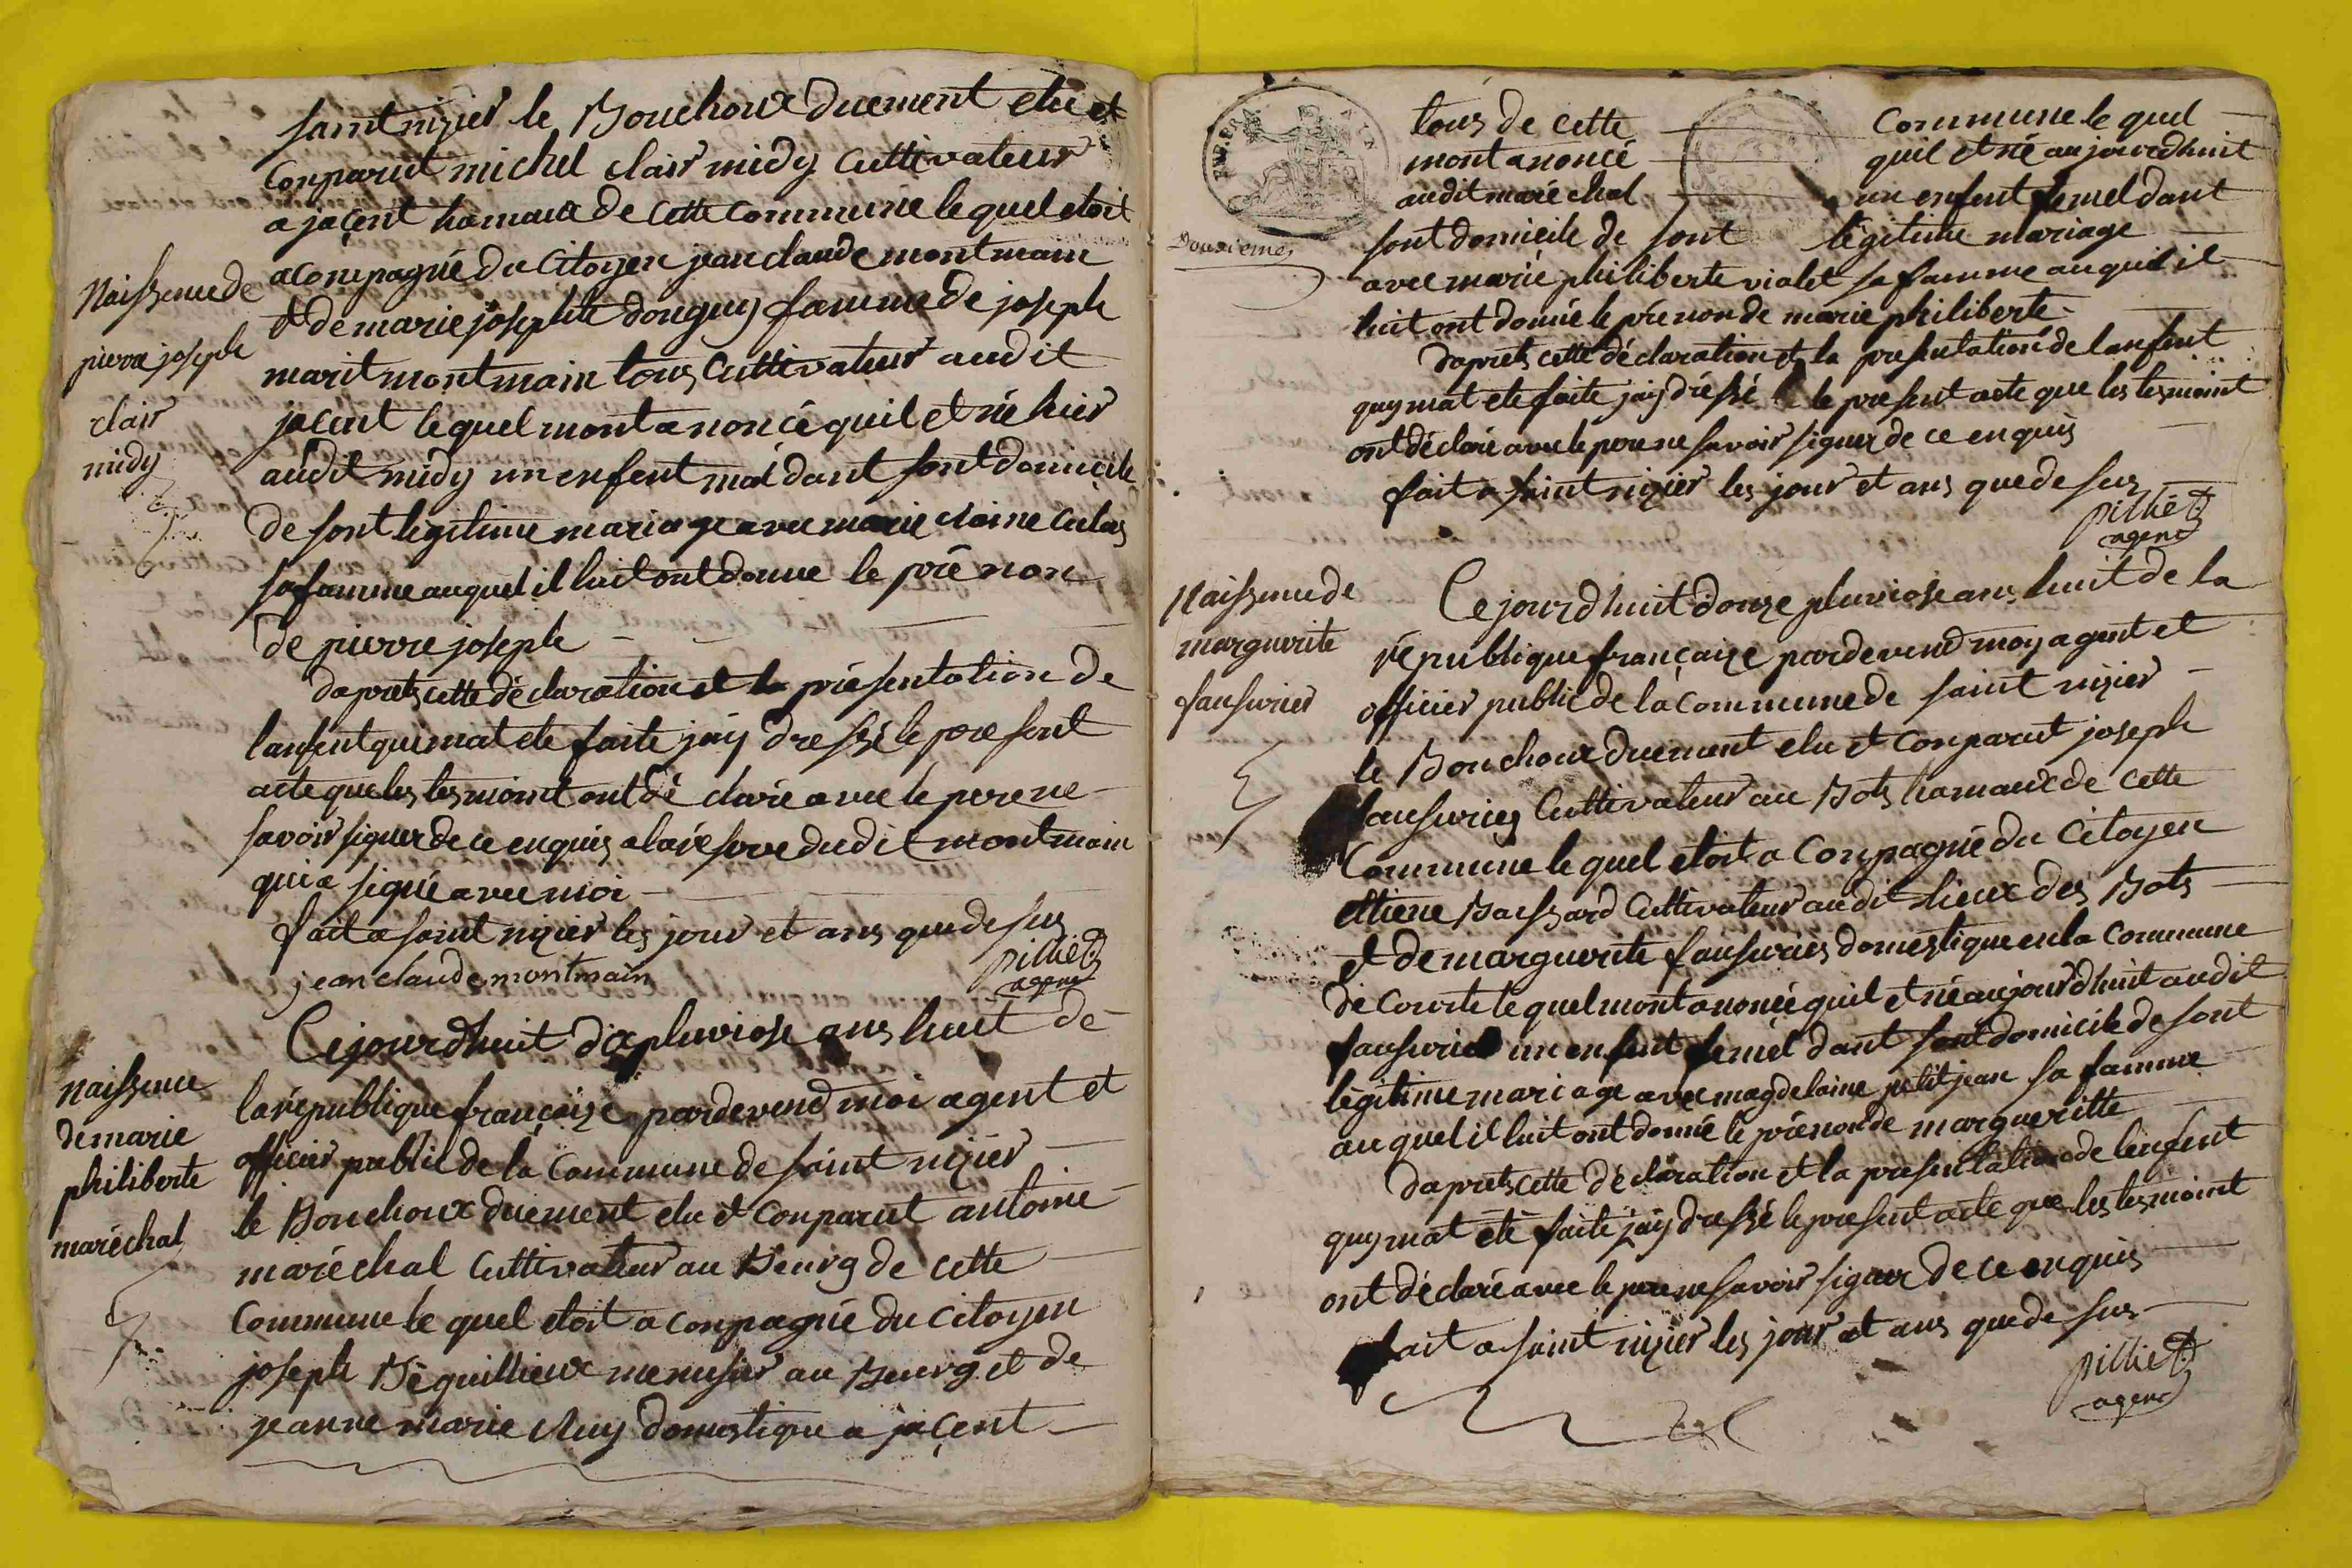 saint nizier le Bouchoux duement elu et
Conparut michel clair midy Cultivateur
a jacent hamaux de Cette Commune le quel etoit
acompagné du Citoyen jean claude montmain
et de marie josephte donguy famme de joseph
marit montmain tous Cultivateur audit
jacent le quel mont anoncé quil et né hier
audit midy un enfent mal dant sont domicile
de sont legitime mariage avec marie claine
sa famme auquel il luit ont donne le prénon
de pierre joseph
Naissence de
pierre joseph
clair
midy
daprets cette déclaration et la présentation de
lanfent qui mat ete faite jaij dressé le present
acte que les tesmoint ont dé claré avec le pere ne
savoir signer de ce enquis a la résserve dudit montmain
qui a signé avec moi
fait a saint nizier les jour et ans que de sus
jean claude montmain
pilliet
agent
Naissence
de marie
philiberte
maréchal
Ce jourdhuit dix pluviose ans huit de
la république françaize pardevend moi agent et
officier public de la Commune de saint nizier
le Bouchoux duement elu et Conparut antoine
maréchal Cultivateur au Bourg de cette
Commune le quel etoit a conpagné du Citoyen
joseph Béguillieux menusier au Bourg et de
jeanne marie domestique a jacent
tous de cette Commune le quel
mont anoncé quil et né aujourdhuit
audit maréchal un enfent femel dant
Douxiemes
sont domicile de sont légitime mariage
avec marie philiberte violet sa famme auquel il
luit ont donné le prénon de marie philiberte
daprets cette déclaration et la presentation de lanfent
quy mat ete faite jaij dréssé le present acte que les tesmoint
ont déclaré avec le pere ne savoir signer de ce enquis
fait a saint nizier les jour et ans que de sus
pilliet
agent
Naissence de
marguerite
fausurier
Ce jourdhuit douze pluviose ans huit de la
république françaize pardevend moy agent et
officier public de la Commune de saint nizier
le Bouchoux duement elu et Conparut joseph
fausurier Cultivateur au Bots hamaux de cette
Commune le quel etoit a Conpagné du Citoyen
ettiene Baissard Cultivateur audit lieux des Bots
et de marguerite fausurier domestique en la Commune
de Courte le quel mont anoncé quil et né aujourdhuit audit
fausurier un enfent femel dant sont domicile de sont
légitime mariage avec magdelaine petitjean sa famme
auquel il luit ont donné le prénon de margueritte
daprets cette déclaration et la presentation de lenfent
quy mat été faite jaij dressé le present acte que les tesmoint
ont déclaré avec le pere ne savoir signer de ce enquis
fait a saint nizier les jour et ans que de sus
pilliet
agent